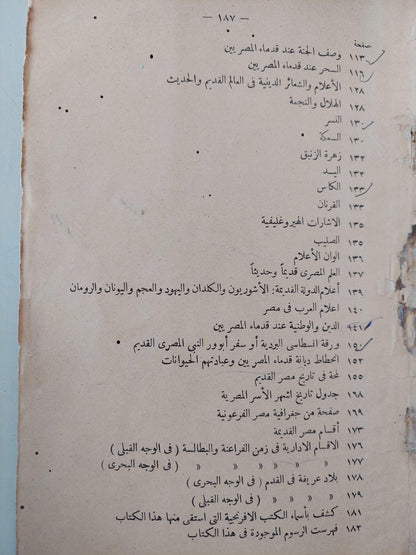 — ١٨٧ —
صفحة
١١٣ وصف الجنة عند قدماء المصريين
١١٦ السحر عند قدماء المصريين
١٢٨ الأعلام والشعائر الدينية في العالم القديم والحديث
١٢٨ الهلال والنجمة
١٣٠ النسر
١٣٠ السمكة
١٣٢ زهرة الزنبق
١٣٢ اليد
١٣٣ الكاس
١٣٣ القرنان
١٣٥ الاشارات الهيروغليفية
١٣٥ الصليب
١٣٦ الوان الأعلام
١٣٧ العلم المصرى قديماً وحديثاً
١٣٩ أعلام الدولة القديمة: الأشوريون والكلدان واليهود والعجم واليونان والرومان
١٤٠ اعلام العرب فى مصر
١٤١ الدين والوطنية عند قدماء المصريين
١٥٠ ورقة انسطاسى البردية أو سفر أبوور النبي المصرى القديم
١٥٢ انحطاط ديانة قدماء المصريين وعبادتهم الحيوانات
١٥٥ لمحة فى تاريخ مصر القديم
١٦٨ جدول تاريخ اشهر الأسر المصرية
١٦٩ صفحة من جغرافية مصر الفرعونية
١٧٣ أقسام مصر القديمة
١٧٦ الاقسام الادارية فى زمن الفراعنة والبطالسة ( فى الوجه القبلى )
١٧٧ » » » » » » ( فى الوجه البحرى )
١٧٨ بلاد عريقة فى القدم ( فى الوجه البحرى )
١٧٩ » » » » ( فى الوجه القبلى )
١٨١ كشف بأسماء الكتب الافرنجية التى استقى منها هذا الكتاب
١٨٢ فهرست الرسوم الموجودة فى هذا الكتاب